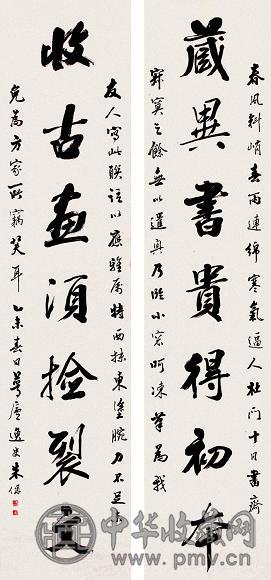 春風料峭春雨連綿寒氣逼人杜門十日書齋
藏異書貴得初本
寂寞之餘無以遣興乃臨小窗呵凍筆為我
友人寫此聯語以應雅屬特西抹東塗腕力不足未
收古畫須撿裂宣
免為方家所竊笑耳 乙未春日 廬逸史朱
中华收藏网
www.pmv.cn